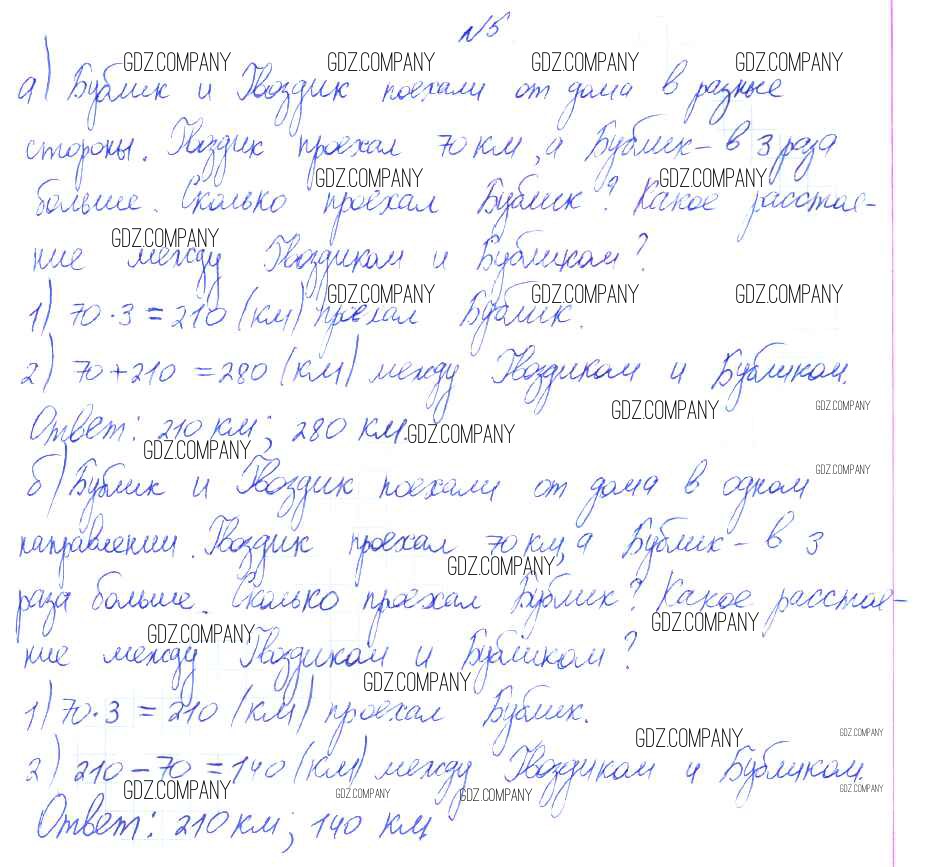 №5
GDZ.COMPANY GDZ.COMPANY GDZ.COMPANY GDZ.COMPANY
а) Бублик и Гвоздик поехали от дома в разные
стороны. Гвоздик проехал 70 км, а Бублик – в 3 раза
GDZ.COMPANY GDZ.COMPANY
больше. Сколько проехал Бублик? Какое расстоя-
GDZ.COMPANY
ние между Гвоздиком и Бубликом?
GDZ.COMPANY GDZ.COMPANY GDZ.COMPANY
1) 70·3=210 (км) проехал Бублик.
2) 70+210=280 (км) между Гвоздиком и Бубликом.
GDZ.COMPANY GDZ.COMPANY
Ответ: 210 км; 280 км.
GDZ.COMPANY
GDZ.COMPANY
GDZ.COMPANY
б) Бублик и Гвоздик поехали от дома в одном
направлении. Гвоздик проехал 70 км, а Бублик – в 3
GDZ.COMPANY
раза больше. Сколько проехал Бублик? Какое расстоя-
GDZ.COMPANY
GDZ.COMPANY
ние между Гвоздиком и Бубликом?
GDZ.COMPANY
1) 70·3=210 (км) проехал Бублик.
GDZ.COMPANY GDZ.COMPANY
2) 210–70=140 (км) между Гвоздиком и Бубликом.
GDZ.COMPANY GDZ.COMPANY GDZ.COMPANY GDZ.COMPANY
Ответ: 210 км; 140 км